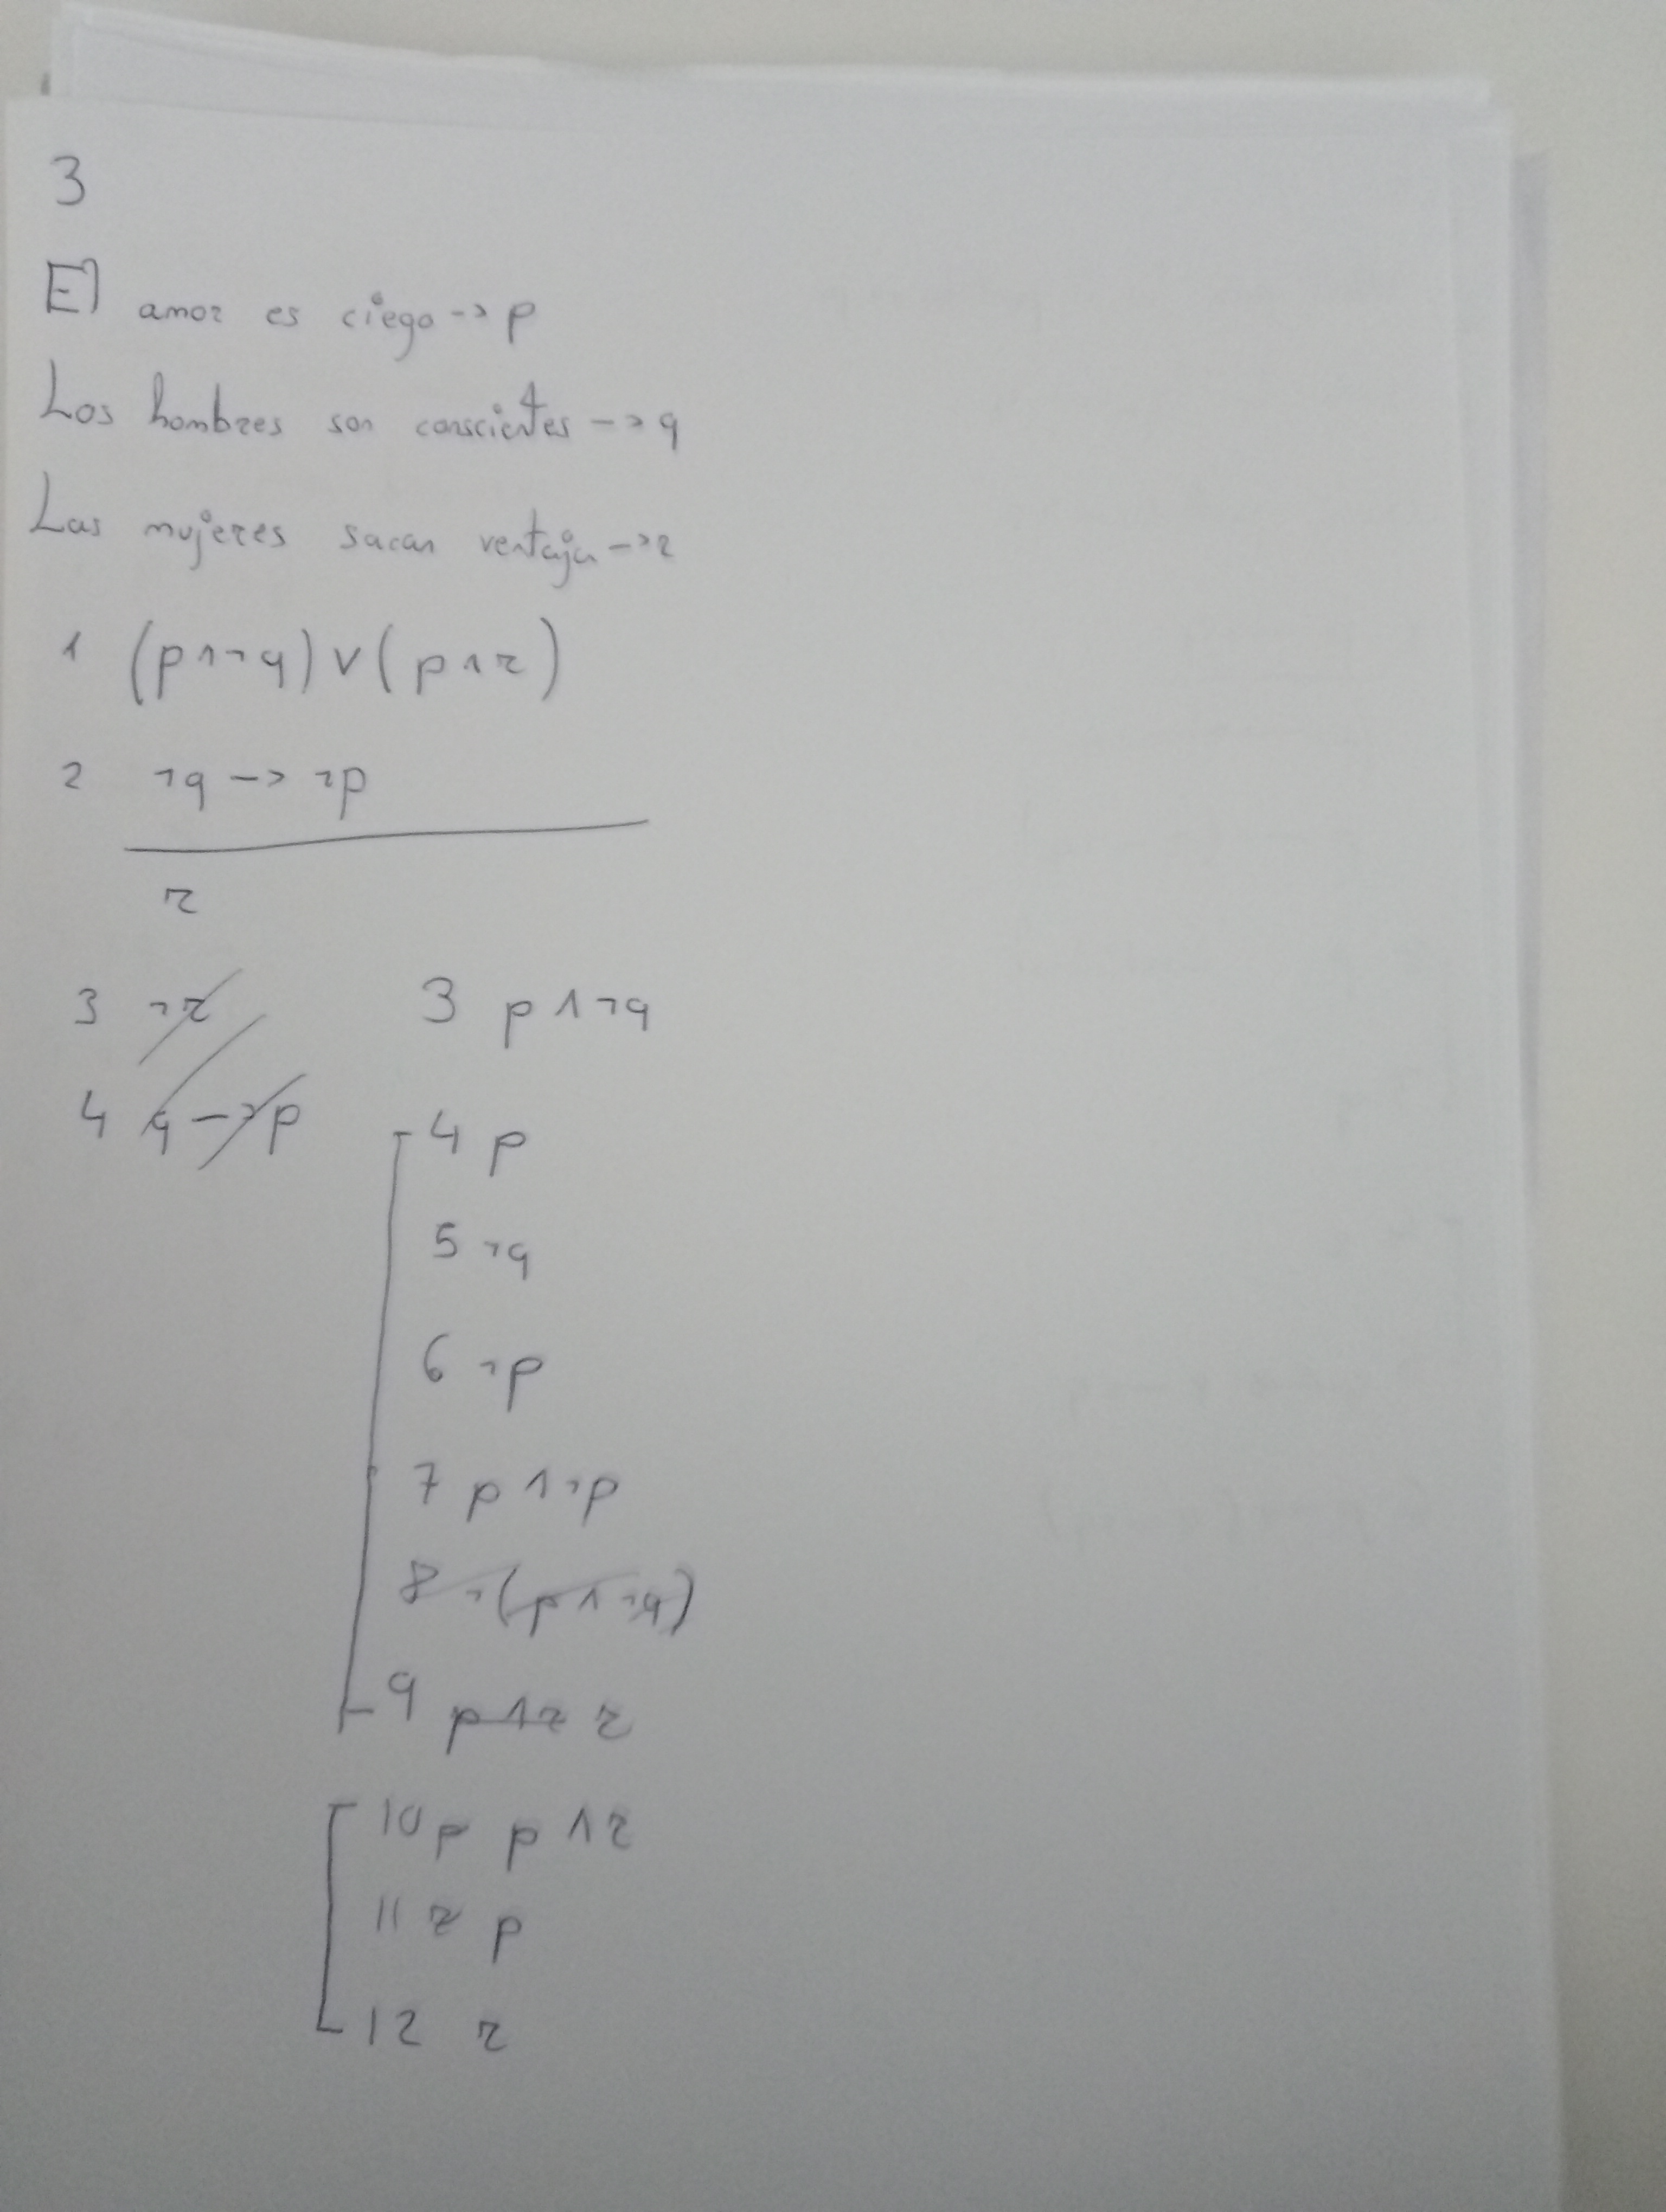 3
El amor es ciego -> p
Los hombres son conscientes -> q
Las mujeres sacan ventaja -> r
1 (p ∧ ¬q) ∨ (p ∧ r)
2 ¬q -> ¬p
r
3 ¬r
4 q -> p
3 p ∧ ¬q
4 p
5 ¬q
6 ¬p
7 p ∧ ¬p
8 ¬(p ∧ ¬q)
9 p ∧ r r
10 p p ∧ r
11 r p
12 r